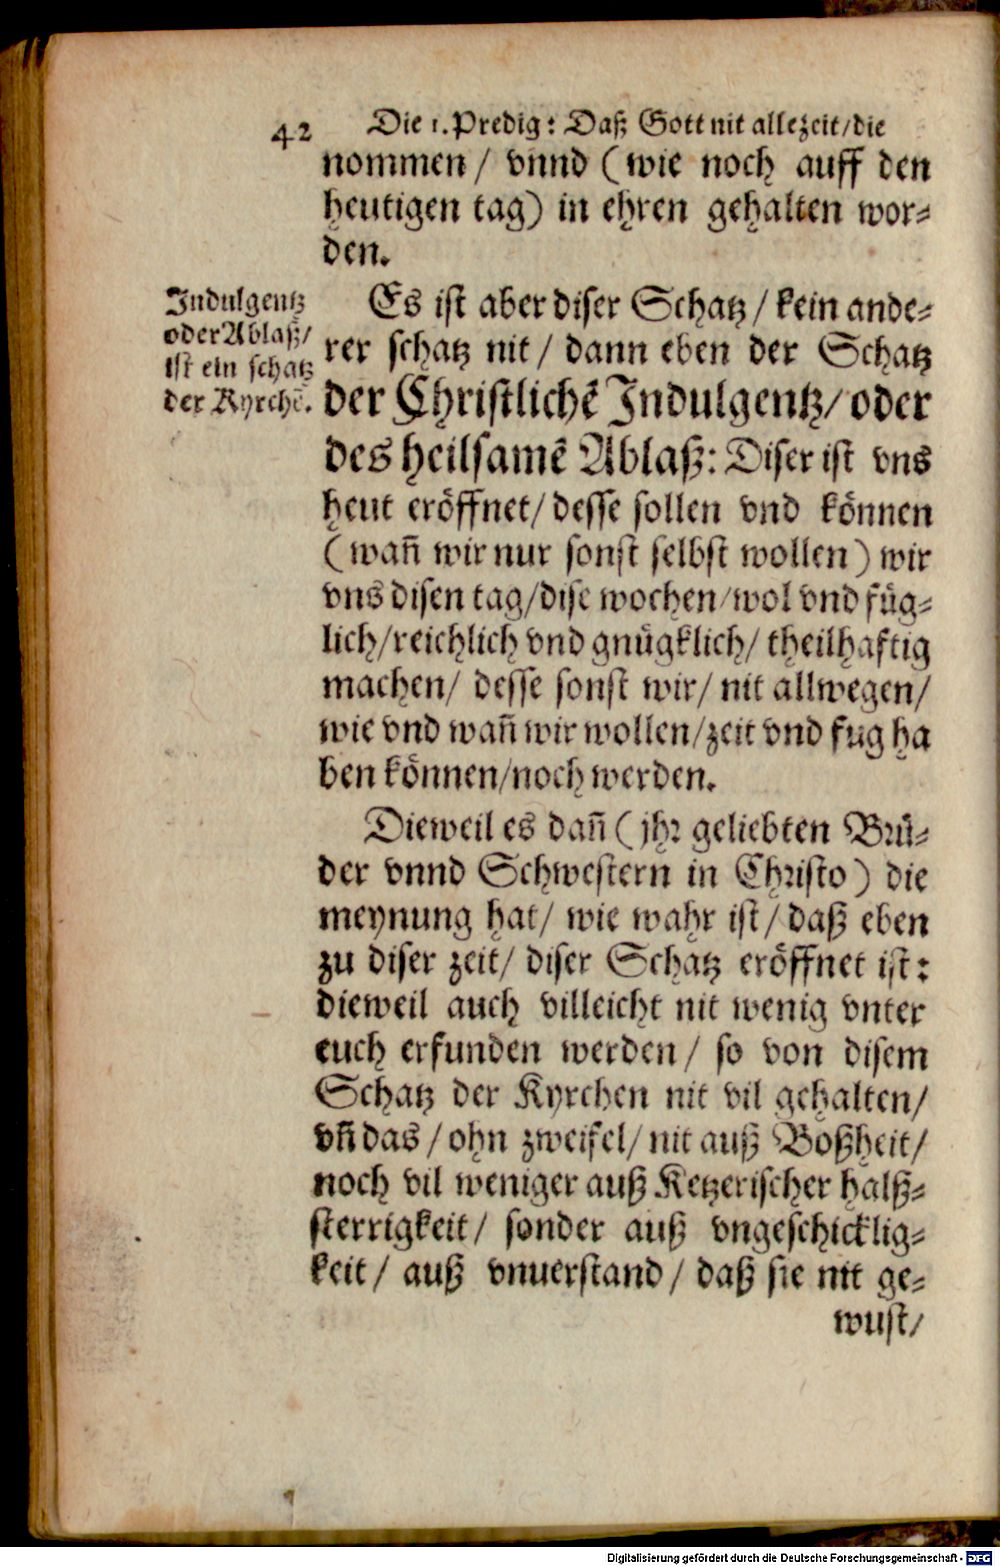 42 Die 1. Predig: Daß Gott nit allezeit/die
nommen/ vnnd (wie noch auff den
heutigen tag) in ehren gehalten wor⸗
den.
Indulgentz
oder Ablaß/
ist ein schatz
der Kyrchẽ.
Es ist aber diser Schatz/ kein ande⸗
rer schatz nit/ dann eben der Schatz
der Christlichẽ Indulgentz/ oder
des heilsamẽ Ablaß: Diser ist vns
heut eröffnet/ desse sollen vnd können
(wañ wir nur sonst selbst wollen) wir
vns disen tag/dise wochen/wol vnd füg⸗
lich/reichlich vnd gnügklich/ theilhaftig
machen/ desse sonst wir/ nit allwegen/
wie vnd wañ wir wollen/zeit vnd fug ha
ben können/noch werden.
Dieweil es dañ (jhr geliebten Brü⸗
der vnnd Schwestern in Christo) die
meynung hat/ wie wahr ist/ daß eben
zu diser zeit/ diser Schatz eröffnet ist:
dieweil auch villeicht nit wenig vnter
euch erfunden werden/ so von disem
Schatz der Kyrchen nit vil gehalten/
vñ das/ ohn zweifel/ nit auß Boßheit/
noch vil weniger auß Ketzerischer halß⸗
sterrigkeit/ sonder auß vngeschicklig⸗
keit/ auß vnuerstand/ daß sie nit ge⸗
wust/
Digitalisierung gefördert durch die Deutsche Forschungsgemeinschaft - DFG